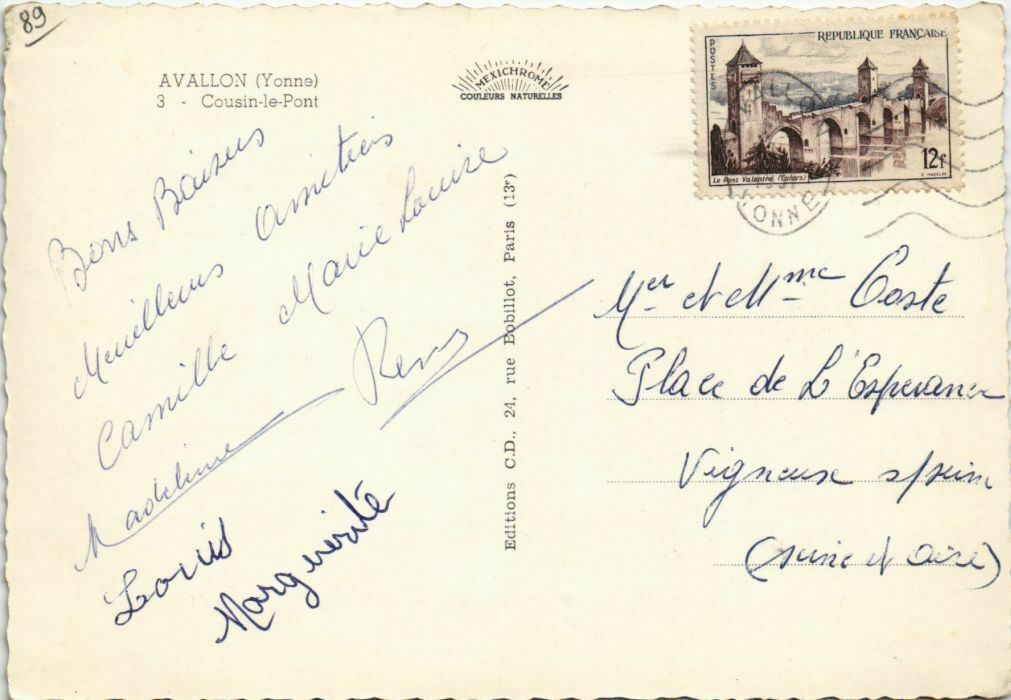 89
AVALLON (Yonne)
3 - Cousin-le-Pont
MEXICHROME
COULEURS NATURELLES
POSTES
REPUBLIQUE FRANÇAISE
Le Pont Valentré (Cahors)
12f
YONNE
Bons Baisers
Meilleures amitiés
Camille Marie Louise
Madeleine Remy
Louis
Marguerite
Editions C.D., 24, rue Bobillot, Paris (13e)
Mer et Mme Coste
Place de L'Esperance
Vigneux s/seine
(seine et oise)